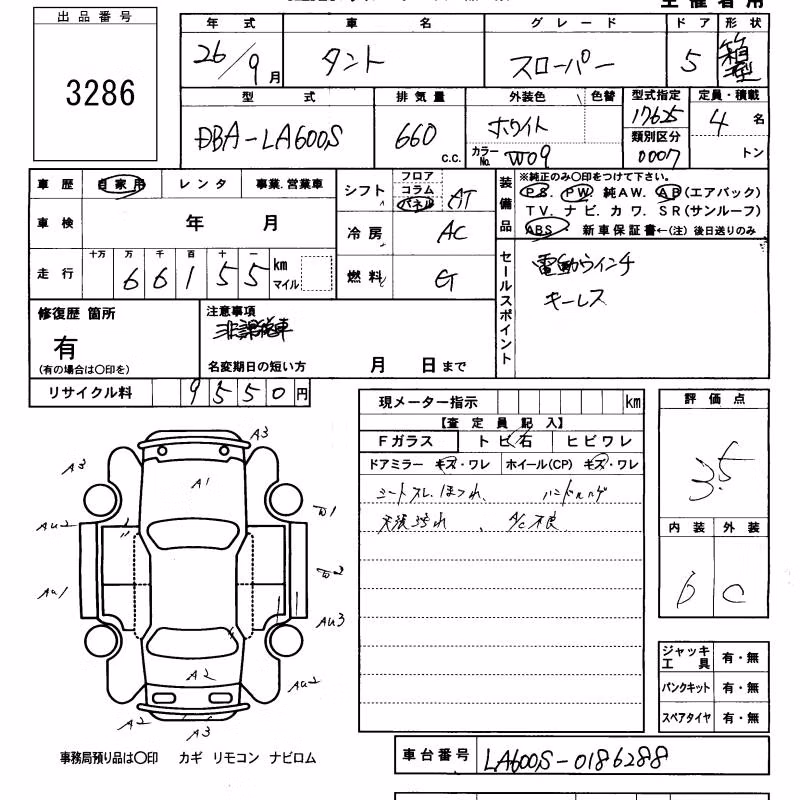 出品番号
3286
年式 車名 グレード ドア 形状
26/9月 タント スローパー 5 箱型
型式 排気量 外装色 色替 型式指定 定員・積載
DBA-LA600S 660 c.c. ホワイト 17625 4名
カラーNo. W09 類別区分 0007 トン
車歴 自家用 レンタ 事業.営業車
車検 年 月
走行 十万 万 千 百 十 一 km マイル
66155
シフト フロア コラム パネル AT
冷房 AC
燃料 G
装備品
※純正のみ〇印をつけて下さい。
PS. PW. 純AW. AB(エアバック)
TV. ナビ. カワ. SR(サンルーフ)
ABS. 新車保証書←(注) 後日送りのみ
セールスポイント
電動ウインチ
キーレス
修復歴 箇所
有
(有の場合は〇印を)
注意事項
非課税車
名変期日の短い方 月 日まで
リサイクル料 9550円
現メーター指示 km
【査定員記入】
Fガラス トビ石 ヒビワレ
ドアミラー キズ・ワレ ホイール(CP) キズ・ワレ
シートスレ、ほつれ、
A/C不良
評価点
3.5
内装 外装
6 C
ジャッキ工具 有・無
パンクキット 有・無
スペアタイヤ 有・無
A3
A3
A1
AU2
W1
AU1
W2
AU3
A2
AU2
A2
A3
事務局預り品は〇印 カギ リモコン ナビロム
車台番号 LA600S-0186288